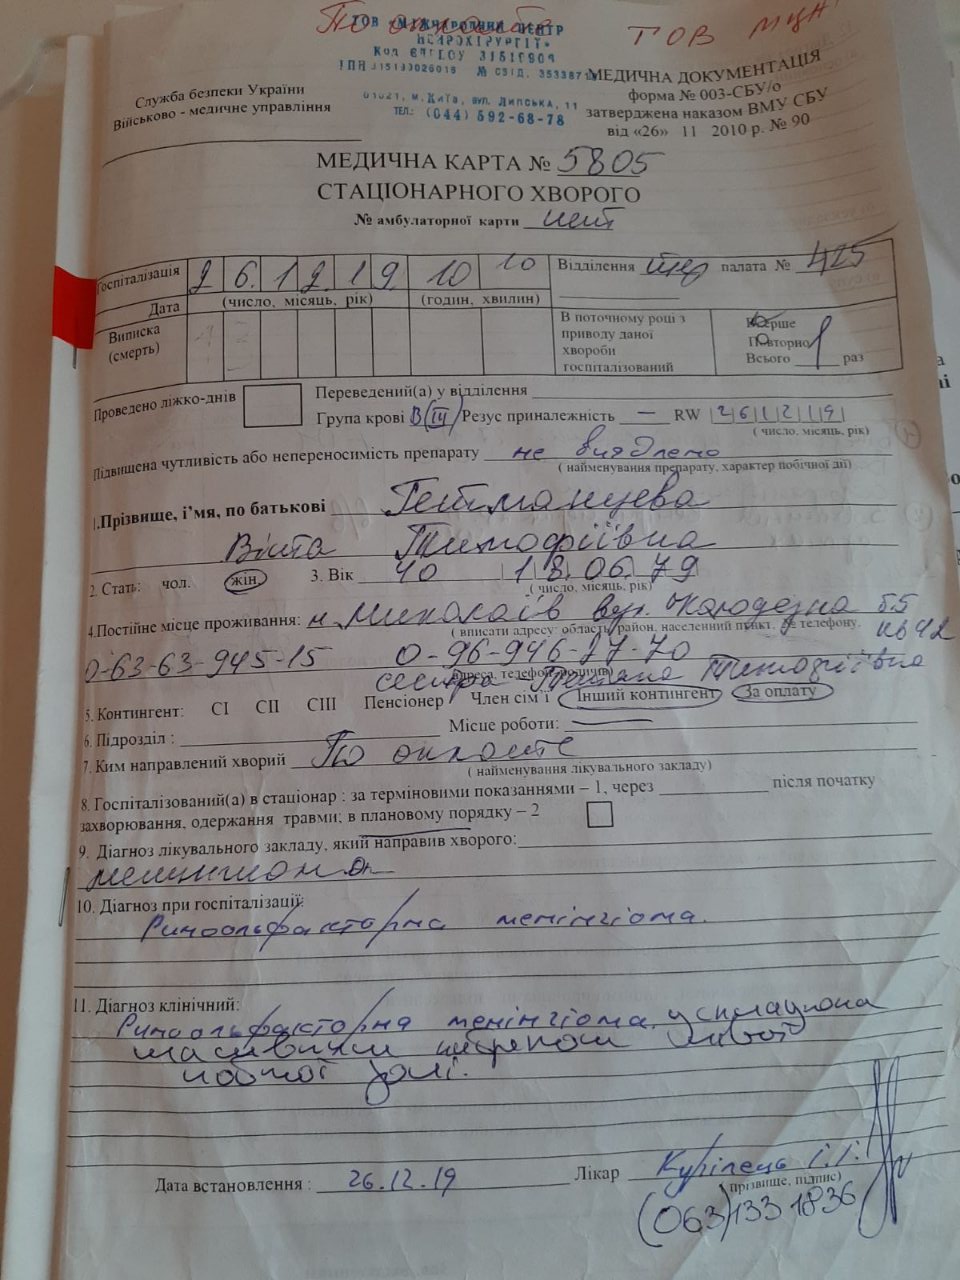 По оплате
ТОВ МЦН
ТОВ «МІЖНАРОДНИЙ ЦЕНТР
НЕЙРОХІРУРГІЇ»
Код ЄДРПОУ
ІПН № СВІД.
01021, м. Київ, вул. Липська, 11
ТЕЛ.: (044) 592-68-78
Служба безпеки України
Військово - медичне управління
МЕДИЧНА ДОКУМЕНТАЦІЯ
форма № 003-СБУ/о
затверджена наказом ВМУ СБУ
від «26» 11 2010 р. № 90
МЕДИЧНА КАРТА № 5805
СТАЦІОНАРНОГО ХВОРОГО
№ амбулаторної карти
Госпіталізація 2 6. 1 2. 1 9. 10 10
Відділення палата № 425
Дата (число, місяць, рік) (годин, хвилин)
Виписка
(смерть)
В поточному році з
приводу даної
хвороби
госпіталізований
Вперше
Повторно
Всього 1 раз
Проведено ліжко-днів
Переведений(а) у відділення
Група крові В(III) Резус приналежність — RW 2 6 1 2 1 9
( число, місяць, рік)
Підвищена чутливість або непереносимість препарату не виявлено
( найменування препарату, характер побічної дії)
1.Прізвище, і’мя, по батькові Гетманцева
Віта Тимофіївна
2. Стать: чол. жін. 3. Вік 40 18.06.79
( число, місяць, рік)
4.Постійне місце проживання: м. Миколаїв вул. Колодезна б5
( вписати адресу: область, район, населенний пункт, № телефону. кв 42
0-63-63-945-15 0-96-946-27-70
адреса, телефон родичів)
сестра - Тетяна Тимофіївна
5. Контингент: СІ СІІ СІІІ Пенсіонер Член сім’ї Інший контингент За оплату
6. Підрозділ : Місце роботи:
7. Ким направлений хворий По оплате
( найменування лікувального закладу)
8. Госпіталізований(а) в стаціонар : за терміновими показаннями – 1, через після початку
захворювання, одержання травми; в плановому порядку – 2
9. Діагноз лікувального закладу, який направив хворого:
10. Діагноз при госпіталізації:
Риноольфакторна менінгіома.
11. Діагноз клінічний:
Риноольфакторна менінгіома, ускладнена
лівої
лобної долі.
Дата встановлення : 26.12.19 Лікар Курілець І.П.
прізвище, підпис)
(063)133 1836